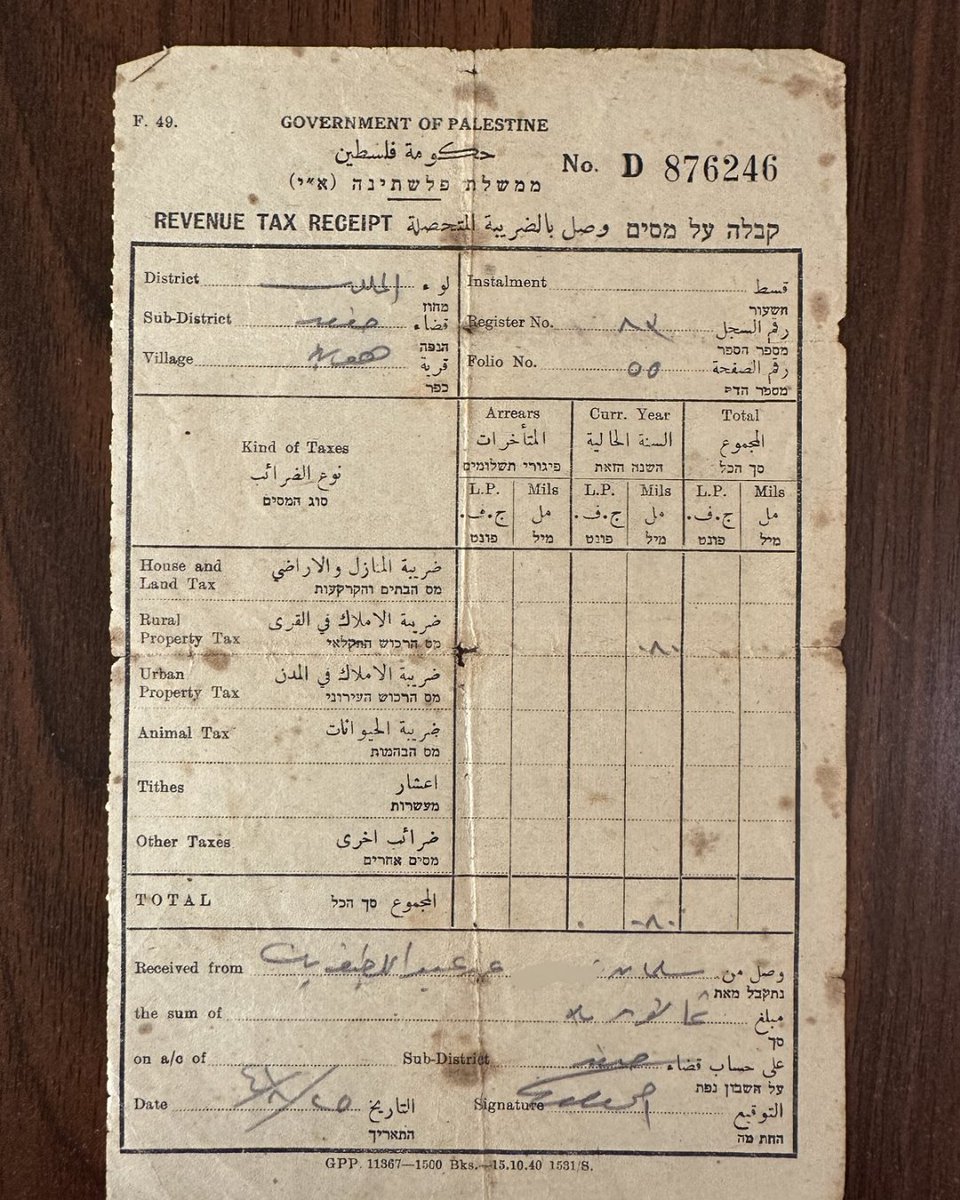 F. 49.
GOVERNMENT OF PALESTINE
حكومة فلسطين
ממשלת פלשתינה (א״י)
No. D 876246
REVENUE TAX RECEIPT وصل بالضريبة المتحصلة קבלה על מסים
District لواء
מחוז
Sub-District قضاء
הנפה
Village قرية
כפר
Instalment قسط
השעור
Register No. ٨٢ رقم السجل
מספר הספר
Folio No. ٥٥ رقم الصفحة
מספר הדף
Kind of Taxes
نوع الضرائب
סוג המסים
Arrears Curr. Year Total
المتأخرات السنة الحالية المجموع
פיגורי תשלומים השנה הזאת סך הכל
L.P. Mils L.P. Mils L.P. Mils
ج.ف. مل ج.ف. مل ج.ف. مل
פונט מיל פונט מיל פונט מיל
House and ضريبة المنازل والاراضي
Land Tax מס הבתים והקרקעות
Rural ضريبة الاملاك في القرى
Property Tax מס הרכוש החקלאי ٠٨٠
Urban ضريبة الاملاك في المدن
Property Tax מס הרכוש העירוני
Animal Tax ضريبة الحيوانات
מס הבהמות
Tithes اعشار
מעשרות
Other Taxes ضرائب اخرى
מסים אחרים
TOTAL المجموع סך הכל ٠ ٠٨٠
Received from وصل من
נתקבל מאת
the sum of مبلغ
סך
on a/c of Sub-District على حساب قضاء
על חשבון נפת
Date التاريخ Signature التوقيع
התאריך החתמה
GPP. 11367—1500 Bks.—15.10.40 1531/S.